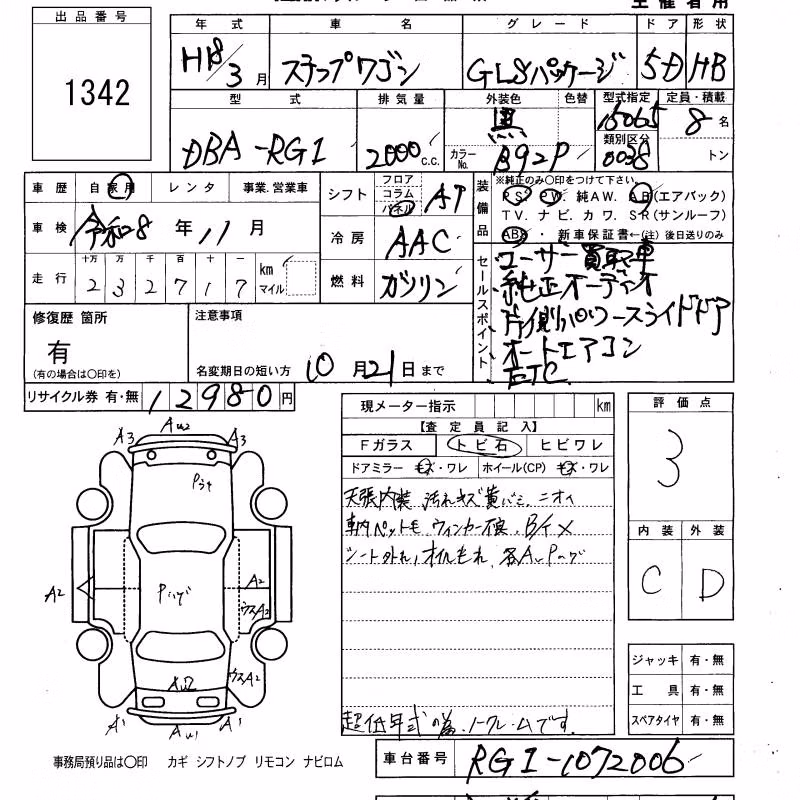 主催者用
出品番号
1342
年式 車名 グレード ドア 形状
H18/3月 ステップワゴン GLSパッケージ 5D HB
型式 排気量 外装色 色替 型式指定 定員・積載
DBA-RG1 2000c.c. 黒 15065 8名
カラーNo. B92P 類別区分 0038 トン
車歴 自家用 レンタ 事業.営業車
車検 令和8年11月
走行 十万 万 千 百 十 一
232717 km マイル
シフト フロア コラム パネル AT
冷房 AAC
燃料 ガソリン
装備品 ※純正のみ〇印をつけて下さい
P.S. P.W. 純AW. A.B(エアバック)
TV. ナビ. カワ. SR(サンルーフ)
ABS・新車保証書←(注)後日送りのみ
セールスポイント
ユーザー買取車
純正オーディオ
片側パワースライドドア
オートエアコン
ETC
修復歴 箇所
有
(有の場合は〇印を)
注意事項
名変期日の短い方 10月21日まで
リサイクル券 有・無 12980円
現メーター指示 km
【査定員記入】
Fガラス トビ石 ヒビワレ
ドアミラー キズ・ワレ ホイール(CP) キズ・ワレ
天張内装 汚れキズ黄バミ、ニオイ
車内ペットモ、ウィンカー不良、Bイメ
シート外れ、オイルもれ、各A、Pツゲ
超低年式の為、ノークレームです。
評価点
3
内装 外装
C D
ジャッキ 有・無
工具 有・無
スペアタイヤ 有・無
A3 AW2 A3
A2 Pツゲ A2
ウスA2
ウスA2
AW2
A1 AW1 A1
事務局預り品は〇印 カギ シフトノブ リモコン ナビロム
車台番号 RG1-1072006